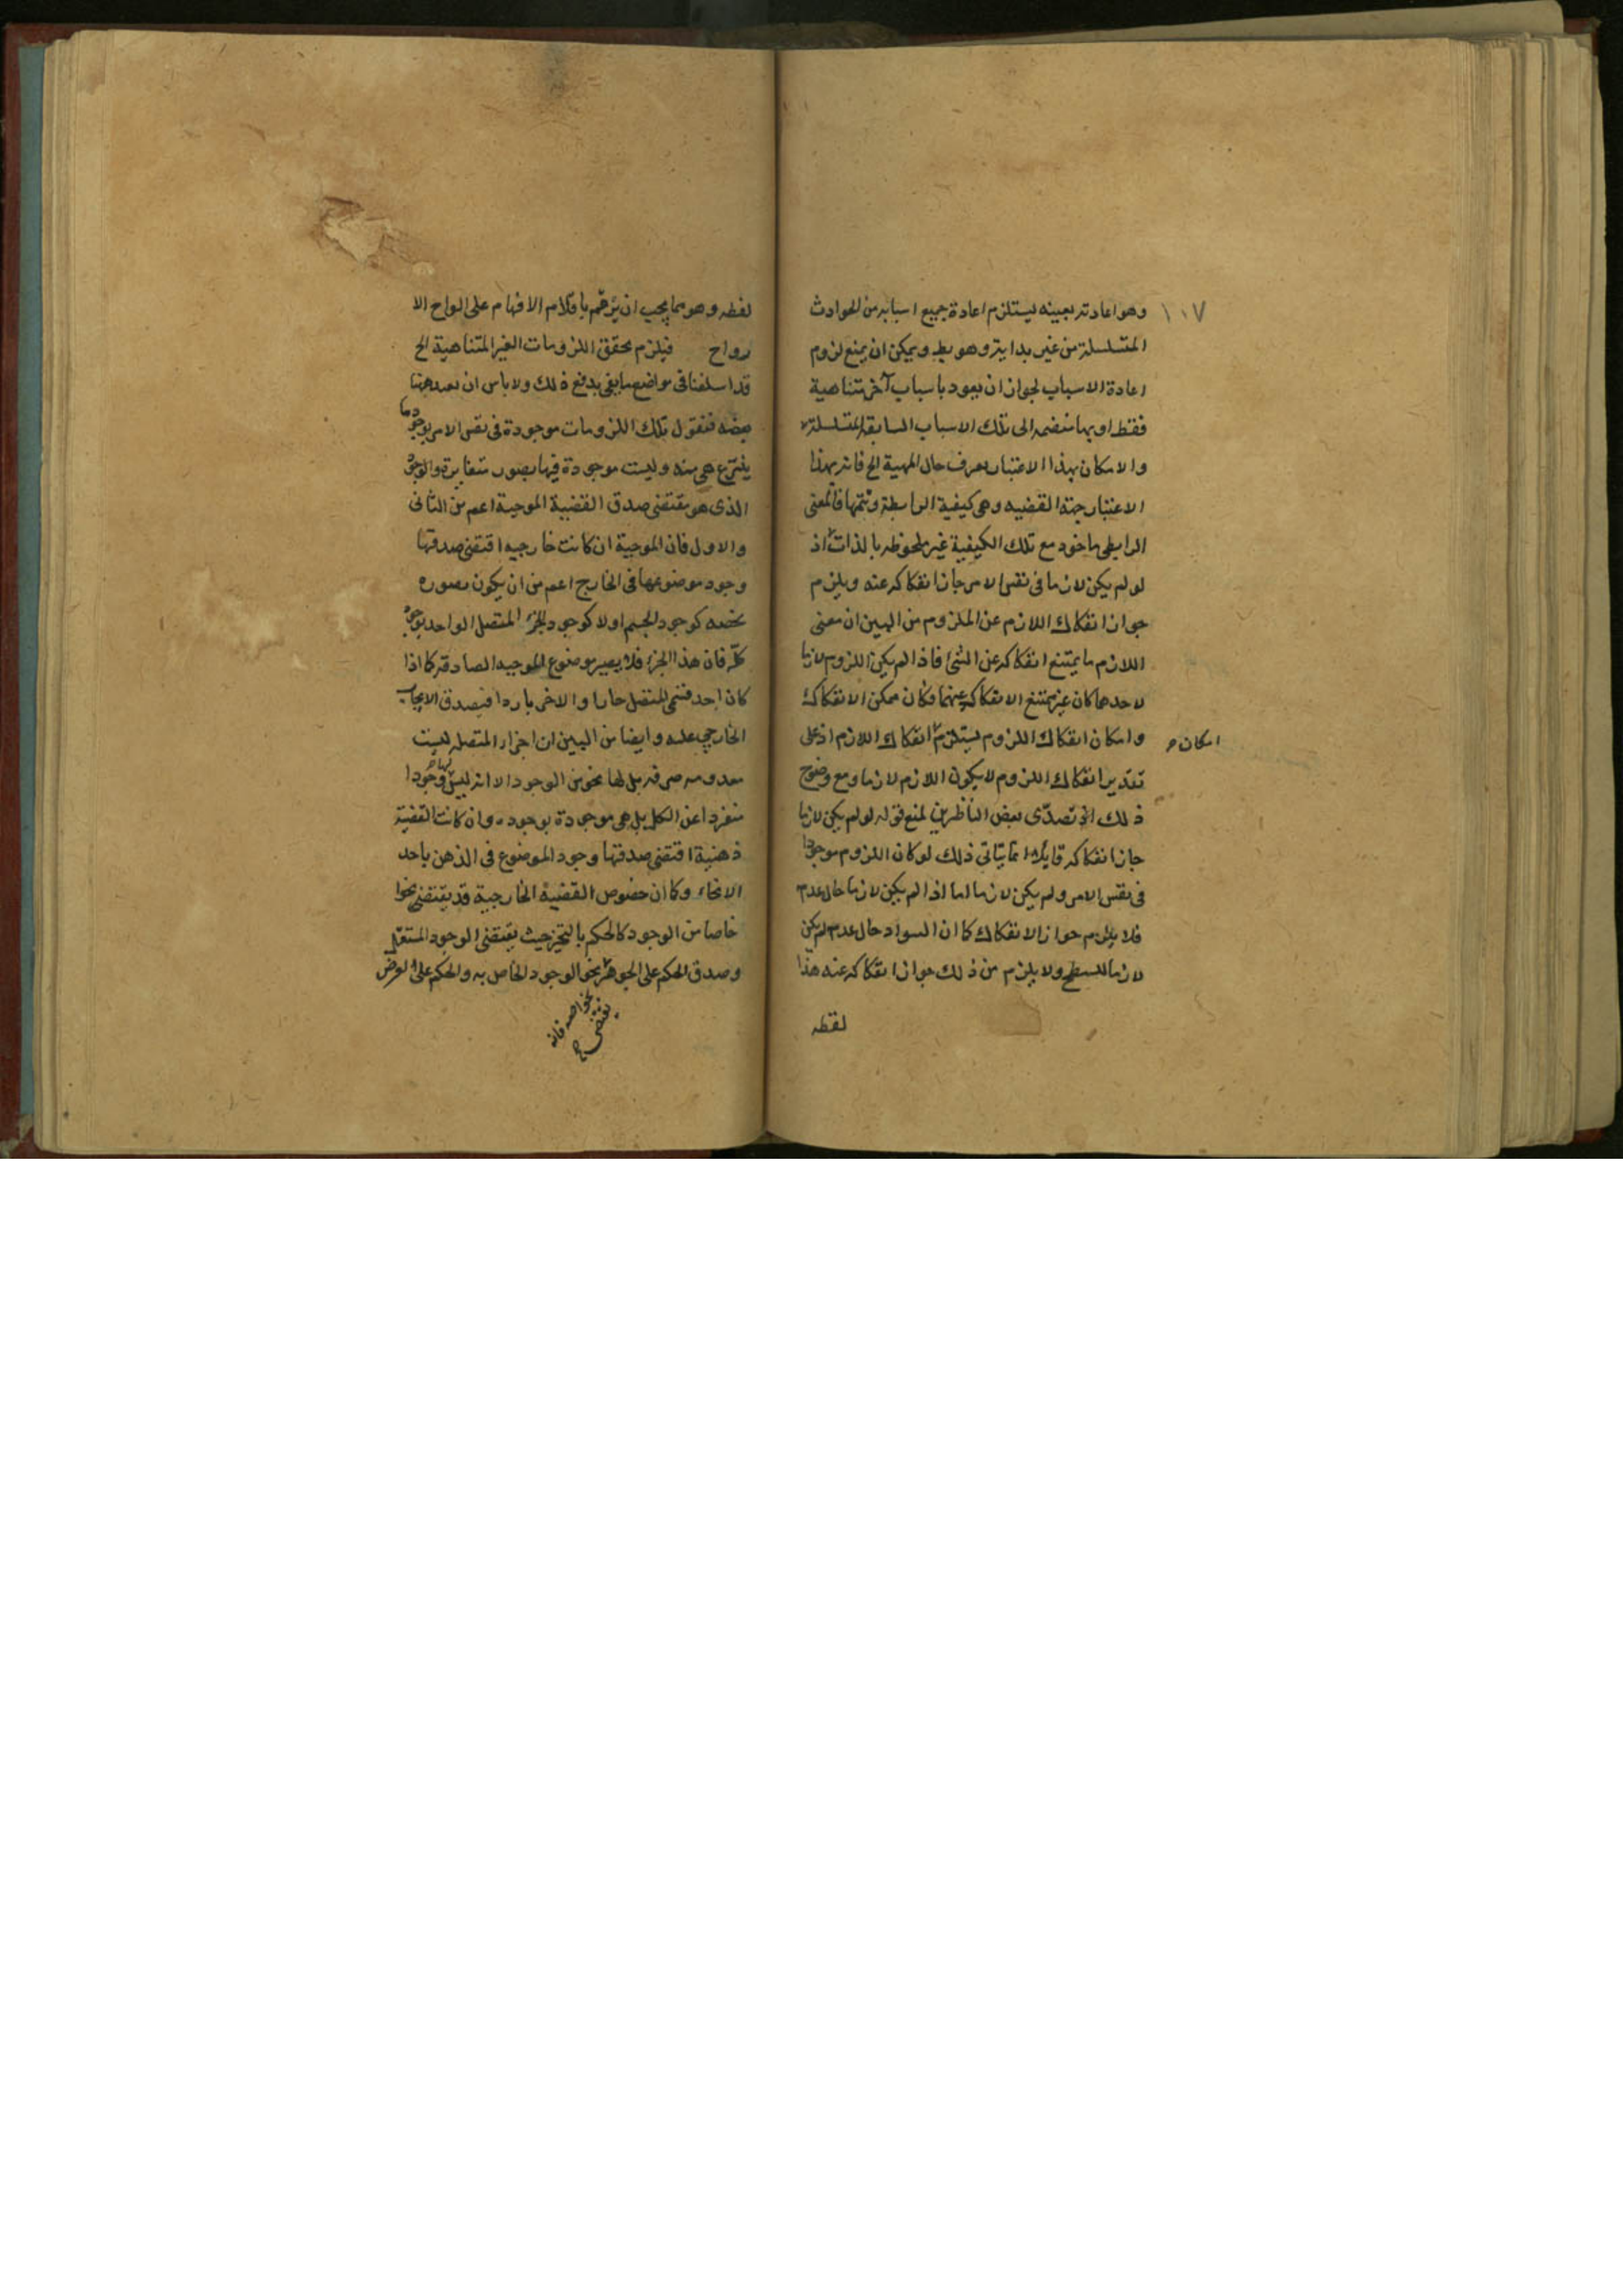 ١٠٧
وهو اعادته بعينه يستلزم اعادة جميع اسبابه من الحوادث
المتسلسلة من غير بداية وهو بط ويمكن ان يمنع لزوم
اعادة الاسباب لجواز ان يعود باسباب آخر متناهية
فقط او بها منضمه الى تلك الاسباب السابقة المتسلسلة
والامكان بهذا الاعتبار يعرف حال المهية الخ فانه بهذا
الاعتبار جهة القضيه وهى كيفية الرابطة وتتمها فالمعنى
الرابطى ماخوذ مع تلك الكيفية غير ملحوظه بالذات اذ
لو لم يكن لازما فى نفس الامر جاز انفكاكه عنه ويلزم
جواز انفكاك اللازم عن الملزوم من البين ان معنى
اللازم ما يمتنع انفكاكه عن الشئ فاذا لم يكن اللزوم لازما
لاحدهما كان غير ممتنع الانفكاك عنهما فكان ممكن الانفكاك
وامكان انفكاك اللزوم يستلزم انفكاك اللازم اذ على
امكان
تقدير انفكاك اللزوم لا يكون اللازم لازما ومع وضوح
ذلك تصدّى بعض الناظرين لمنع قوله لو لم يكن لازما
جاز انفكاكه قايلا انما يتاتى ذلك لو كان اللزوم موجودا
فى نفس الامر ولم يكن لازما اما اذا لم يكن لازما حال عدمه
فلا يلزم جواز الانفكاك كما ان السواد حال عدمه لم يكن
لازما للسطح ولا يلزم من ذلك جواز انفكاكه عنه هذا
لفظه
لفظه وهو مما يجب ان يرقم باقلام الافهام على الواح الا
رواح فيلزم تحقق اللزومات الغير المتناهية الخ
قد اسلفنا فى مواضع ما يفى بدفع ذلك ولا باس ان نعيد ههنا
بعضه فنقول تلك اللزومات موجودة فى نفس الامر بوجود ما
ينتزع هى منه وليست موجودة فيها بصور متغايرة والوجود
الذى هو مقتضى صدق القضية الموجبة اعم من الثانى
والاول فان الموجبة ان كانت خارجيه اقتضى صدقها
وجود موضوعها فى الخارج اعم من ان يكون بصوره
تخصه كوجود الجسم اولا كوجود الجزء المتصل الواحد بوجود
كلّه فان هذا الجزء قد يصير موضوع الموجبه الصادقه كما اذا
كان احد قسمى المتصل حارا والاخر باردا فيصدق الايجاب
الخارجى عليه وايضا من البين ان اجزاء المتصله ليست
معدومه صرفه بل لها نحو من الوجود الا انه ليس لها وجودا
منفردا عن الكل بل هى موجودة بوجوده وان كانت القضية
ذهنية اقتضى صدقها وجود الموضوع فى الذهن باحد
الانحاء وكما ان خصوص القضية الخارجية قد يقتضى نحوا
خاصا من الوجود كالحكم بالتحيز حيث يقتضى الوجود المستقل
وصدق الحكم على الجوهر نحو الوجود الخاص به والحكم على العرض
بخواصه فانه
يقتضى